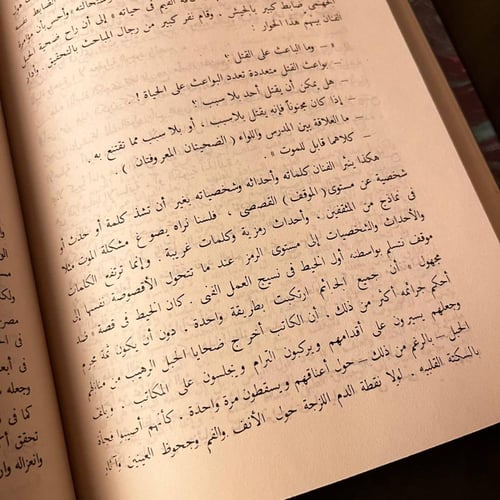 المهنى ضابط كبير بالجيش . وقام نفر كبير من رجال المباحث بالتحقيق . ودار
الفنان بينهم هذا الحوار :
« – وما الباعث على القتل ؟
– بواعث القتل متعددة تعدد البواعث على الحياة ! .
– هل يمكن أن يقتل أحد بلا سبب ؟
– إذا كان مجنوناً فإنه يقتل بلاسبب ، أو بلا سبب مما نقتنع به .
– ما العلاقة بين المدرس واللواء ( الضحيتان المعروفتان ) .
– كلاهما قابل للموت » .
هكذا ينثر الفنان كلماته وأحداثه وشخصياته بغير أن تشذ كلمة أو حدث أو
شخصية عن مستوى ( الموقف ) القصصى ، فلسنا نراه يصوغ مشكلة الموت مثلا
فى نماذج من المثقفين ، وأحداث رمزية وكلمات غريبة . وإنما ترتفع الكلمات
والأحداث والشخصيات إلى مستوى الرمز عند ما تتحول الأقصوصة نفسها إلى
موقف نتسلم بواسطته أول الخيط فى نسيج العمل الفنى . كان الخيط فى قصة « ضد
مجهول » أن جميع الجرائم ارتكبت بطريقة واحدة ، دون أن يكون ثمة مجرم
أحكم جرائمه أكثر من ذلك . أن الكاتب أخرج ضحايا الحبل الرهيب من منازلهم
وجعلهم يسيرون على أقدامهم ويركبون الترام ويجلسون على المكاتب . ويلف
الحبل – بالرغم من ذلك – حول أعناقهم ويسقطون مرة واحدة . كأنهم أصيبوا فجأة
بالسكتة القلبية . لولا نقطة الدم اللزجة حول الأنف والفم وجحوظ العينين وآثار